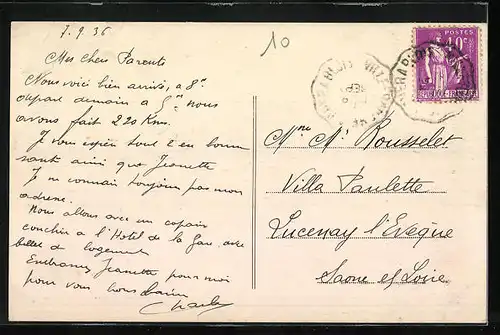 7.9.36
10
Mes chers Parents
Nous voici bien arrivés, à 8h
départ demain à 5h nous
avons fait 220 Kms.
J vous espère tout 2 en bonne
santé ainsi que Jeanette
Je ne connais toujours pas mon
adresse.
Nous allons avec un copain
coucher à l'Hotel de la Gare avec
billet de logement
Embrassez Jeanette pour moi
pour vous bons baisers
Charles
POSTES
Mme Mr Rousselet
Villa Paulette
Lucenay l'Evèque
Saone et Loire